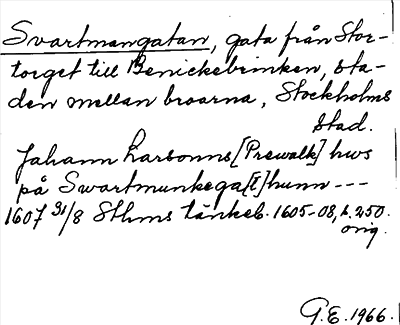 Svartmangatan, gata från Stor-
torget till Benickebrinken, Sta-
den mellan broarna, Stockholms
stad.
Johann Larsonns [Prewalk] hws
på Swartmunkega[t]hunn ---
1607 31/8 Sthms tänkeb. 1605-08, s. 250.
orig.
G.E. 1966.